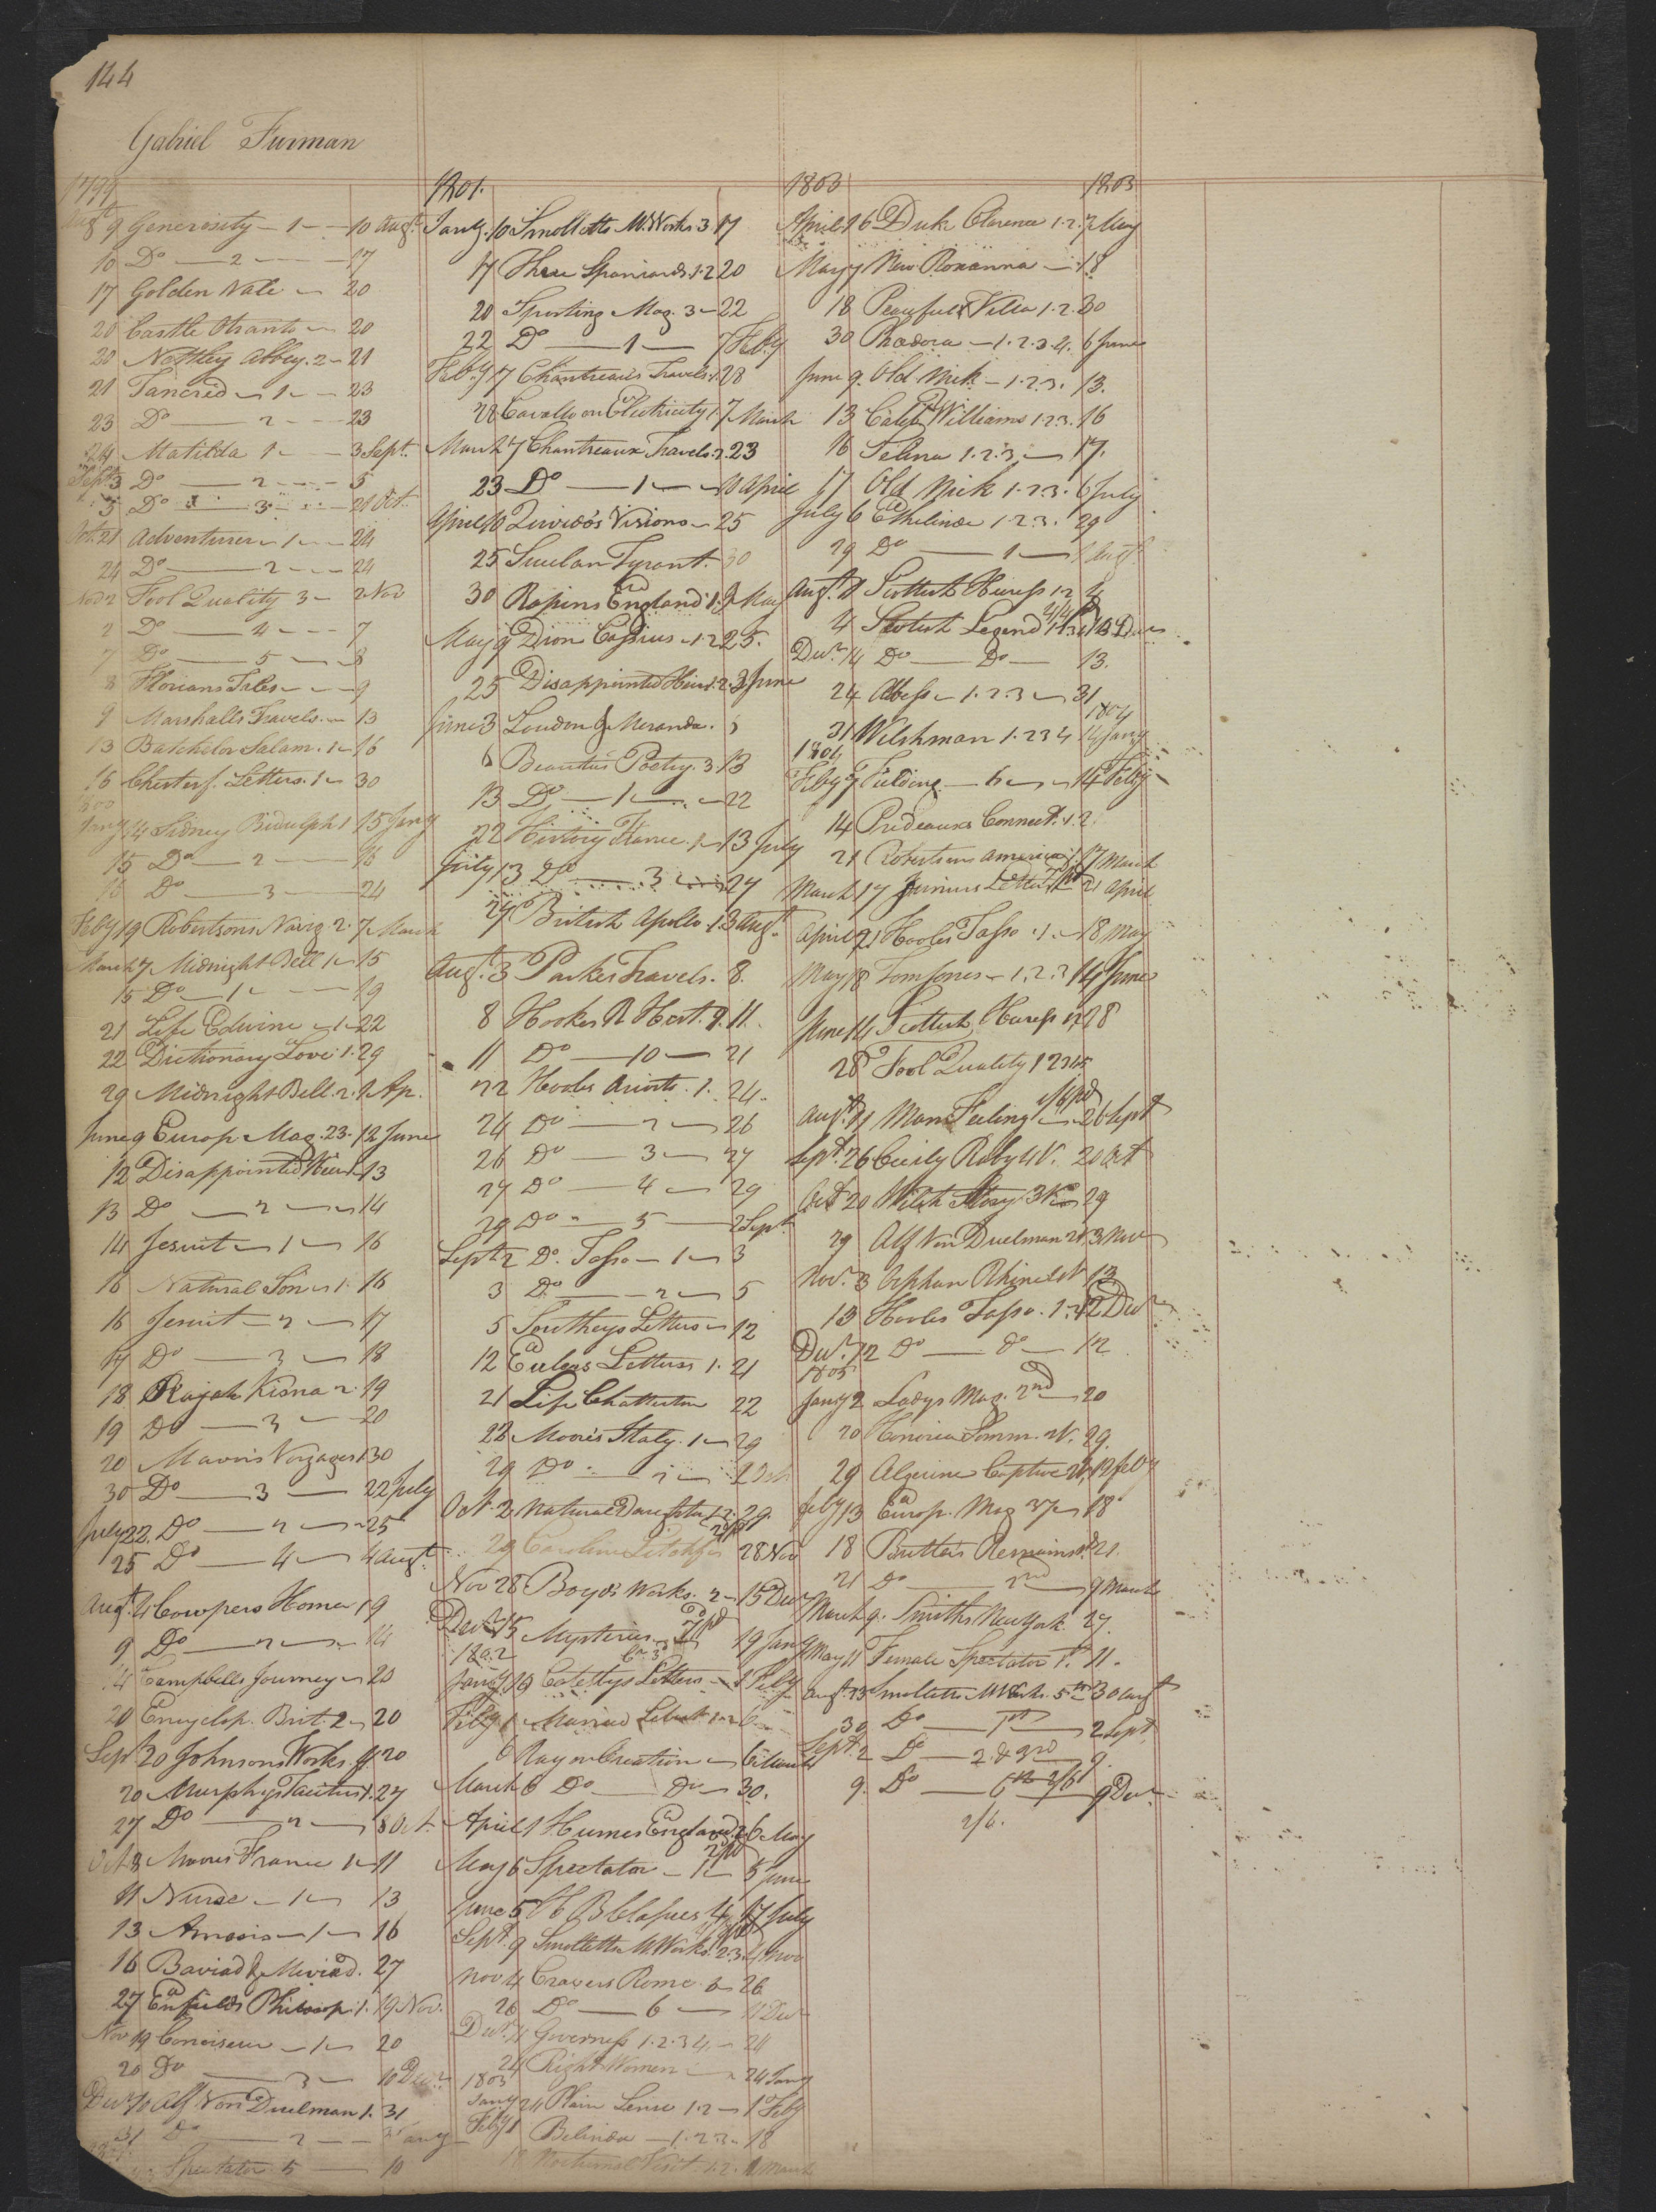 144
Gabriel Furman
1799
Augt 9 Generosity — 1 — 10 Augt
10 Do — 2 — 17
17 Golden Vale — 20
20 Castle Otranto — 20
20 Nettley Abbey. 2 — 21
21 Tancred — 1 — 23
23 Do — 2 — 23
24 Matilda 1 — 3 Sept.
Sept 3 Do — 2 — 5
5 Do — 3 — 21 Oct.
Oct. 21 Adventurer — 1 — 24
24 Do — 2 — 24
Nov 2 Fool Quality 3 — 2 Nov
2 Do — 4 — 7
7 Do — 5 — 8
8 Florians Tales — 9
9 Marshalls Travels — 13
13 Batchelor Salam. 1 — 16
16 Chesterf. Letters. 1 — 30
1800
Jany 14 Sidney Bidulph 1 15 Jany
15 Do — 2 — 16
16 Do — 3 — 24
Feby 19 Robertsons Navig 2. 7 March
March 7 Midnight Bell 1 — 15
15 Do — 1 — 19
21 Life Edwine — 1 — 22
22 Dictionary Love 1. 29
29 Midnight Bell. 2. 1 Ap.
June 9 Europ. Mag. 23. 12 June
12 Disappointed Heir 1 13
13 Do — 2 — 14
14 Jesuit — 1 — 16
16 Natural Son — 1. 16
16 Jesuit — 2 — 17
17 Do — 3 — 18
18 Rajah Kisna 2. 19
19 Do — 3 — 20
20 Mavors Voyages 1 30
30 Do — 3 — 22 July
July 22. Do — 2 — 25
25 Do — 4 — 4 Augt
Augt 4 Cowpers Homer 1 9
9 Do — 2 — 14
14 Campbells Journey — 20
20 Encyclop. Brit. 2 — 20
Sept. 20 Johnsons Works 20
20 Murphys Tacitus 1. 27
27 Do — 2 — 8 Oct.
Oct. 8 Moores France 1 — 11
11 Nurse — 1 — 13
13 Amasis — 1 — 16
16 Baviad & Meviad. 27
27 Enfields Philosop. 1. 19 Nov.
Nov 19 Conoiseur — 1 — 20
20 Do — 3 — 10 Decr
Decr 10 Alf Von Duelman 1. 31
31 Do — 2 — Jany
Spectator. 5 — 10
1801.
Jany. 10 Smolletts M. Works. 3. 17
17 Three Spaniards. 1.2 20
20 Sporting Mag. 3 — 22
22 Do — 1 — 7 Feby
Feby 7 Chantreau's Travels. 1. 28
28 Cavallo on Electricity 1. 7 March
March 7 Chantreaux Travels. 2. 23
23 Do — 1 — 10 April
April 10 Quivedo's Visions — 25
25 Tyrant. 30
30 Rapins England 1. 9 May
May 9 Dion Cassius — 1.2 25.
25 Disappointed Heir. 1.2. 3 June
June 3 Loudon & Meranda. 6
6 Beauties Poetry. 3. 13
13 Do — 1 — 22
22 History France. 1 — 13 July
July 13 Do — 3 — 27
27 British Apollo. 1. 3 Augt
Augt. 3 Parkes Travels. 8.
8 Hookes R. Hist. 9. 11.
11 Do — 10 — 21
22 Hooles Ariosto. 1. 24.
24 Do — 2 — 26
26 Do — 3 — 27
27 Do — 4 — 29
29 Do — 5 — 2 Sept.
Sept 2 Do. Tasso — 1 — 3
3 Do — 2 — 5
5 Southeys Letters — 12
12 Eulers Letters 1. 21
21 Life Chatterton 22
22 Moore's Italy. 1 — 29
29 Do — 2 — 2 Oct
Oct. 2 Natural Daughter 1.2. 29.
29 Caroline Litchf. 28 Nov
Nov 28 Boyds Works. 2 — 15 Decr
Decr 15 Mysteries 19 Jany
1802
Jany 19 Letters — 1 Feby
Feby 1 Married 1.2 6
6 Ray on Creation — 6 March
March 6 Do — Do — 30.
April 1 Humes England. 6 May
May 6 Spectator — 1 — 5 June
June 5 17 July
Sept. 9 Smolletts M. Works. 2.3. 4 Nov
Nov 4 Rome. 26
26 Do — 6 — 11 Decr
Decr 11 Governess 1.2.3.4. — 24
24 Rights Women — 24 Jany
1803
Jany 24 Plain Sense 1.2 — 1 Feby
Feby 1 Belinda — 1.2.3. 18
18 Nocturnal Visit 1.2. March
1803
April 16 Duke Clarence 1.2. 7 May
May 7 New Roxanna — 18
18 Peaceful Villa 1.2. 30
30 Rhedora — 1.2.3.4. 6 June
June 9. Old Nick — 1.2.3. 13.
13 Caleb Williams 1.2.3. 16
16 Selina 1.2.3 — 17.
17 Old Nick 1.2.3. 6 July
July 6 Ethelinde 1.2.3. 29
29 Do — 1 — 1 Augt.
Augt. 1 Scottish Heiress 1.2 4
4 Scotish Legend 14 Decr
Decr 14 Do — Do — 13.
24 Abess — 1.2.3 — 31
1803
1804
31 Welshman 1.2.3.4 4 Jany
1804
Feby 7 Fielding — 6 — 14 Feby
14 Prideaux Connect. 1.2.
21 Robertsons America. 1. 17 March
March 17 Junius Letters 21 April
April 21 Hooles Tasso. 1. — 18 May
May 18 Tom Jones — 1.2.3 14 June
June 14 Scottish Heiress 1.2 28
28 Fool Quality 1 2 3 4 5
Augt 11 Man Feeling 26 Sept
Sept. 26 Cicily Raby 4 V. 20 Oct
Oct 20 Welsh Story 3 V. 29
29 Alf Von Duelman 2 V. 3 Nov
Nov. 3 Orphan Rhine 13
13 Hooles Tasso. 1.2 12 Decr
Decr. 12 Do — Do — 12
1805
Jany 2 Ladys Mag. 2nd — 20
20 Honoria Somm. 2 V. 29.
29 Algerine Captive 2 V. 12 Feby
Feby 13 Europ. Mag 37 — 18
18 Butlers Remains 1st 21.
21 Do — 2nd — 9 March
March 9. Smiths New York. 27.
May 11 Female Spectator 1st. 11.
Augt 23 Smolletts M Works. 5th — 30 Augt
30 Do — 1st — 2 Sept
Sept. 2 Do — 2 & 3rd 9.
9. Do — 6th 2/6 — 9 Decr
2/6.